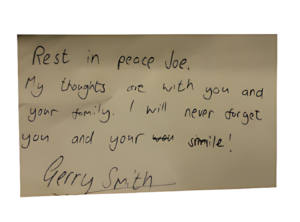 Rest in peace Joe.
My thoughts are with you and
your family. I will never forget
you and your smile!
Gerry Smith